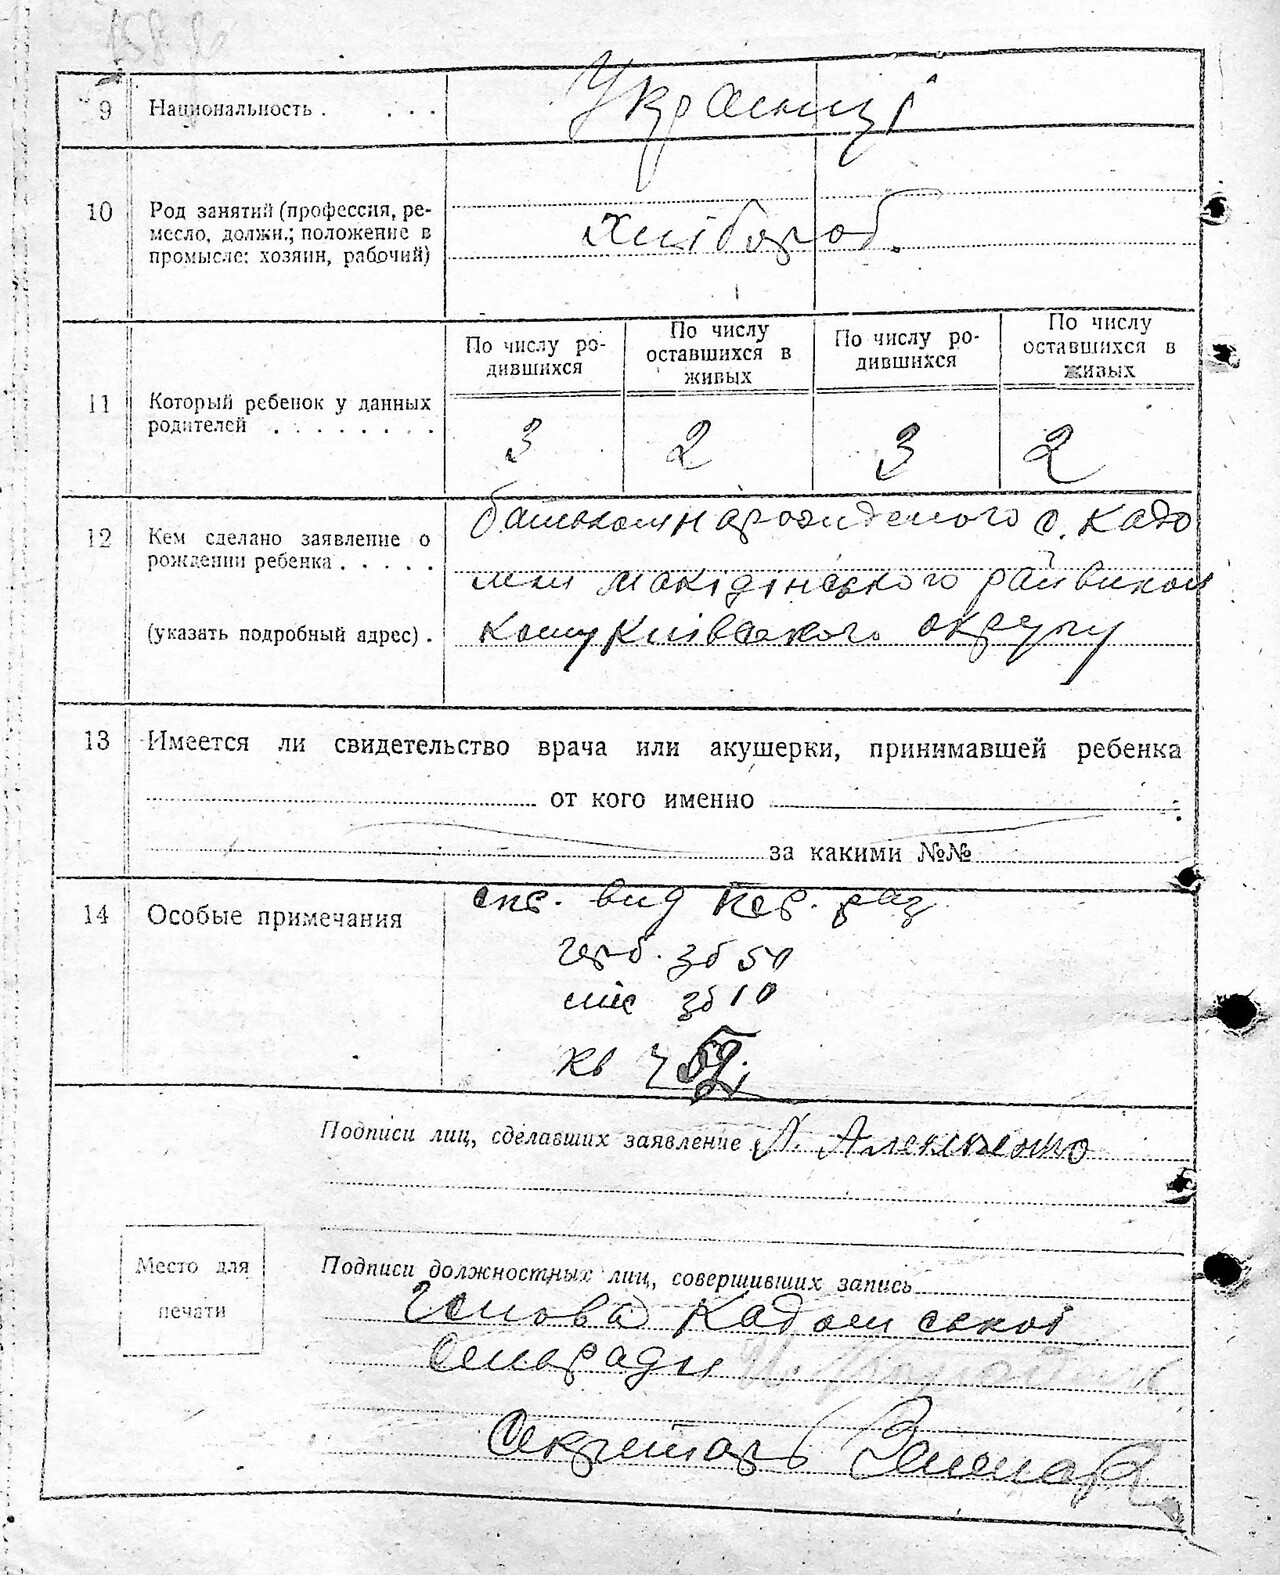 9 Национальность . . . . Українці
10 Род занятий (профессия, ре-
месло, должн.; положение в
промысле: хозяин, рабочий)
хлібороб.
По числу ро-
дившихся
По числу
оставшихся в
живых
По числу ро-
дившихся
По числу
оставшихся в
живых
11 Который ребенок у данных
родителей . . . . . . . .
3 2 3 2
12 Кем сделано заявление о
рождении ребенка . . . . .
(указать подробный адрес) .
батьком народженого с. Кадо
млі макідінського райвикон
кому Київського округу
13 Имеется ли свидетельство врача или акушерки, принимавшей ребенка
от кого именно
за какими №№
14 Особые примечания
вид пер. раз
герб. зб 50
міс зб 10
кв ч
Подписи лиц, сделавших заявление Алексієнко
Подписи должностных лиц, совершивших запись
Место для
печати
Голова Кадомської
Сільради
Секретарь